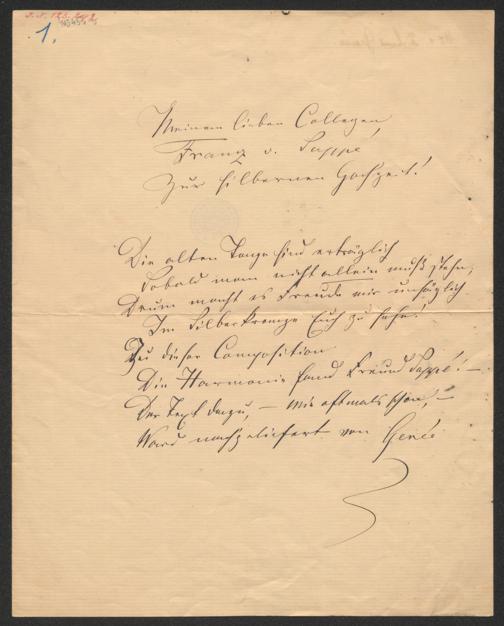 1.
Meinem lieben Collegen
Franz v. Suppé
Zur silbernen Hochzeit!
Die alten Tage sind erträglich
Sobald man nicht allein muß stehn,
Drum macht es Freude mir unsäglich
Im Silberkranze Euch zu sehn!
Zu dieser Composition
Die Harmonie fand Freund Suppé! –
Der Text dazu, – wie oftmals schon, –
Ward nachgeliefert von Genée